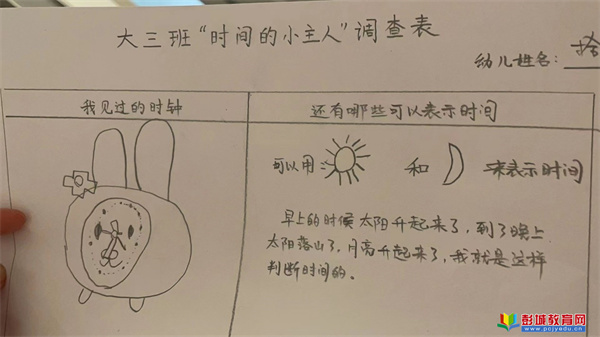 大三班“时间的小主人”调查表
幼儿姓名：
我见过的时钟
还有哪些可以表示时间
可以用 和 来表示时间
早上的时候太阳升起来了，到了晚上
太阳落山了，月亮升起来了，我就是这样
判断时间的。
彭城教育网
www.pcjyedu.cn